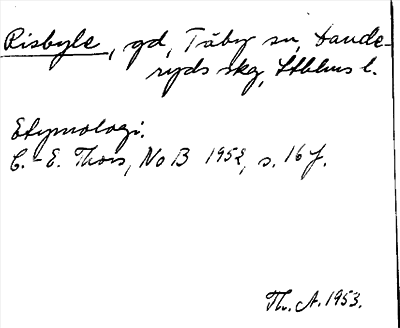 Risbyle, gd, Täby sn, Dande-
ryds skg, Sthlms l.
Etymologi.
C.-E. Thors, NoB 1952, s. 16 f.
Th. A. 1953.